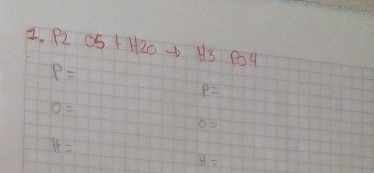 1. P2 O5 + H2O → H3 PO4
P=
P=
O=
O=
H=
H=